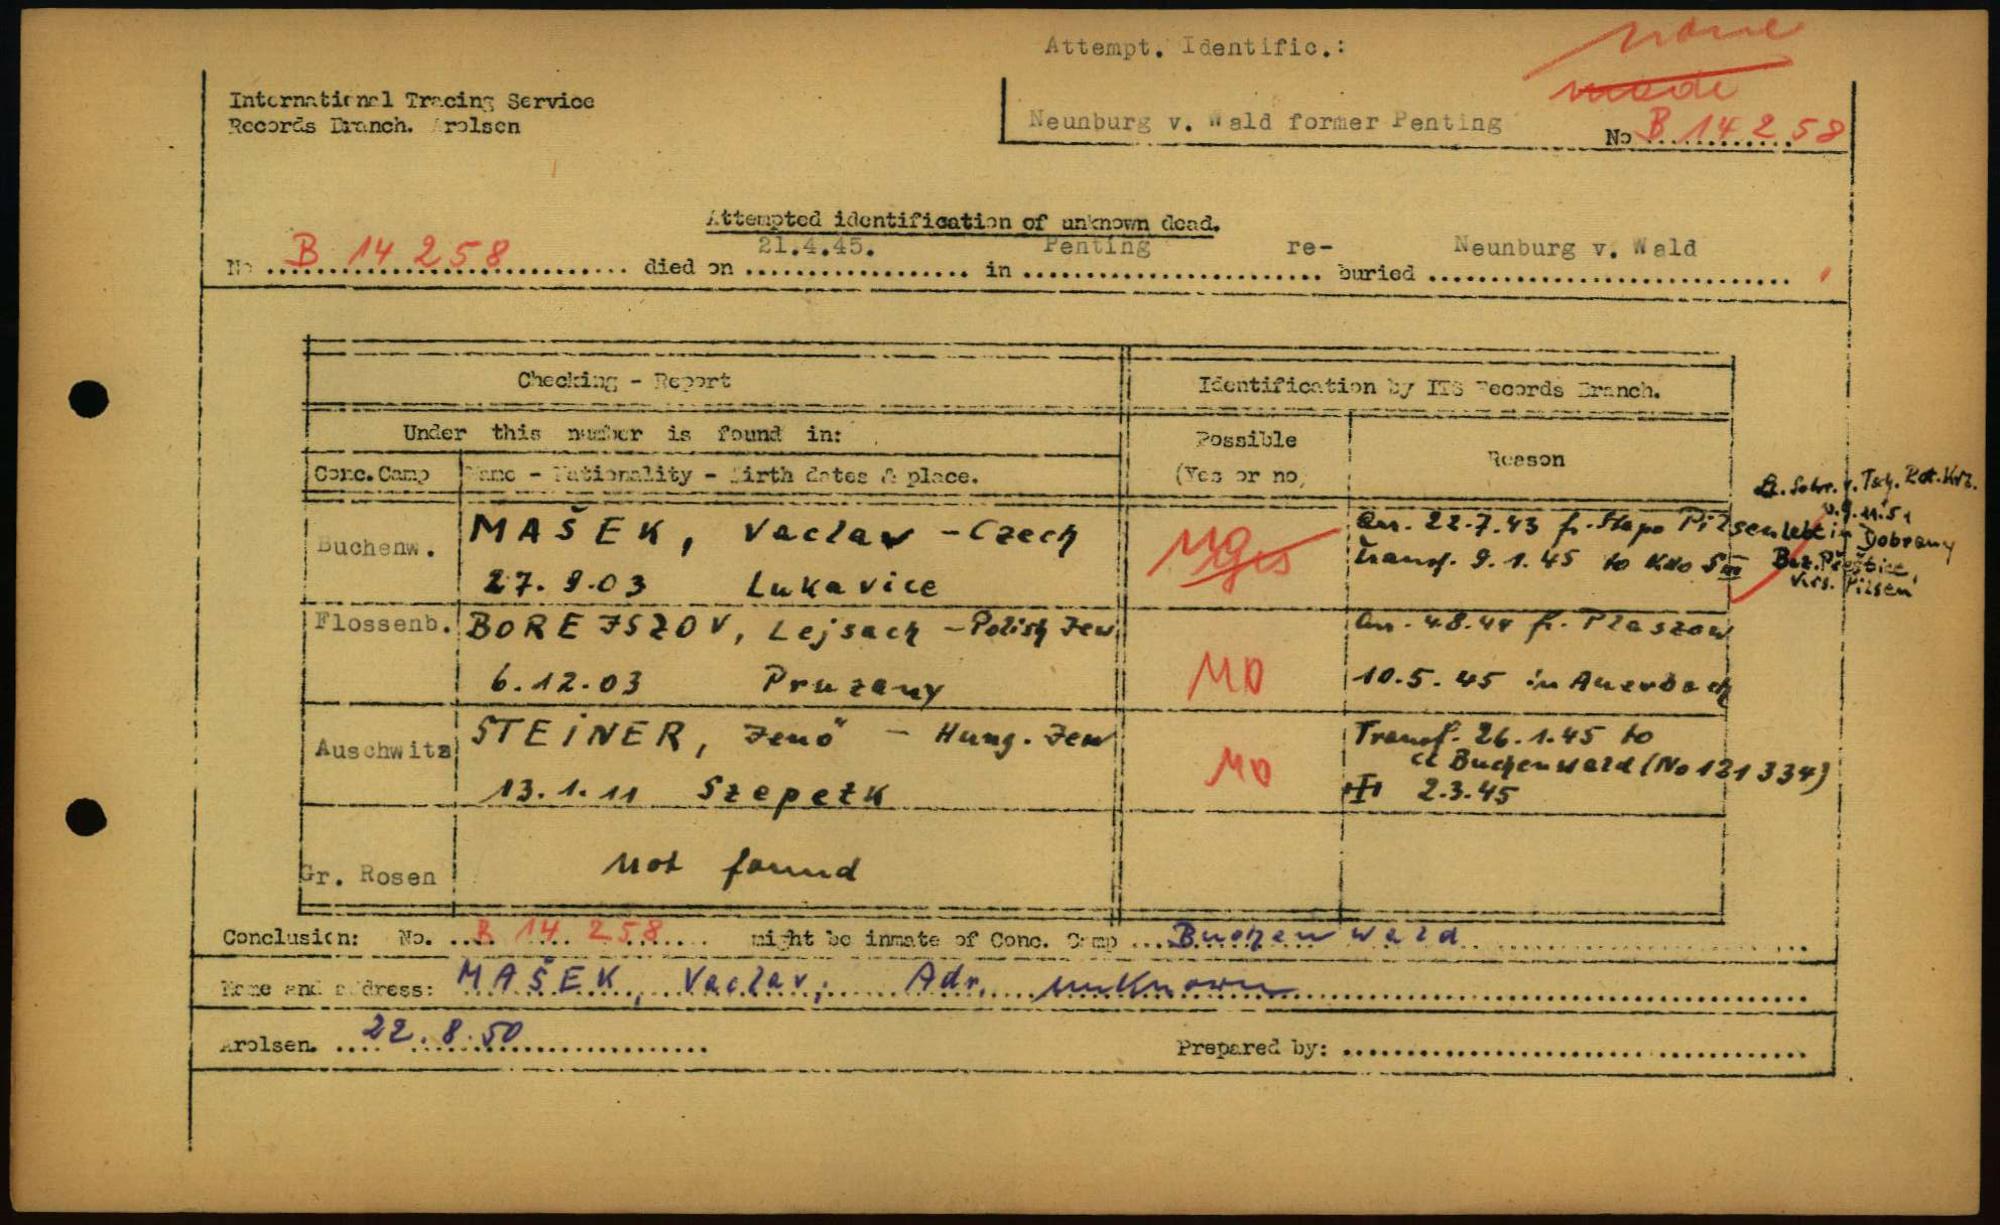 Attempt. Identific.: none
made
International Tracing Service
Records Branch. Arolsen
Neunburg v. Wald former Penting
No B 14 258
Attempted identification of unknown dead.
No B 14 258 died on 21.4.45. in Penting re-buried Neunburg v. Wald
Checking - Report
Identification by ITS Records Branch.
Under this number is found in:
Possible
(Yes or no)
Reason
Conc.Camp
Name - Nationality - Birth dates & place.
Lt. Schr. v. Tsch. Rot. Krz.
v. 9.11.51
lebt in Dobrany
Bez. Přeštice,
Krs. Pilsen
Buchenw.
MAŠEK, Vaclav - Czech
27.9.03 Lukavice
yes
arr. 22.7.43 fr. Stapo Pilsen
transf. 9.1.45 to Kdo SIII
Flossenb.
BOREJSZOV, Lejsach - Polish Jew
6.12.03 Pruzany
NO
arr. 4.8.44 fr. Plaszow
10.5.45 in Auerbach
Auschwitz
STEINER, Jenö - Hung. Jew
13.1.11 Szepetk
NO
Transf. 26.1.45 to
cc Buchenwald (No 121334)
2.3.45
Gr. Rosen
not found
Conclusion: No. B 14 258 might be inmate of Conc. Camp Buchenwald
Name and address: MAŠEK, Vaclav; Adr. unknown
Arolsen. 22.8.50
Prepared by: